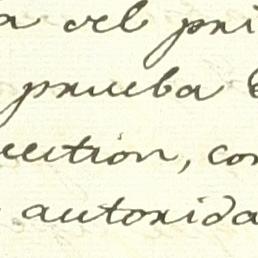 a del pri
prueba
uestion, con
autorida